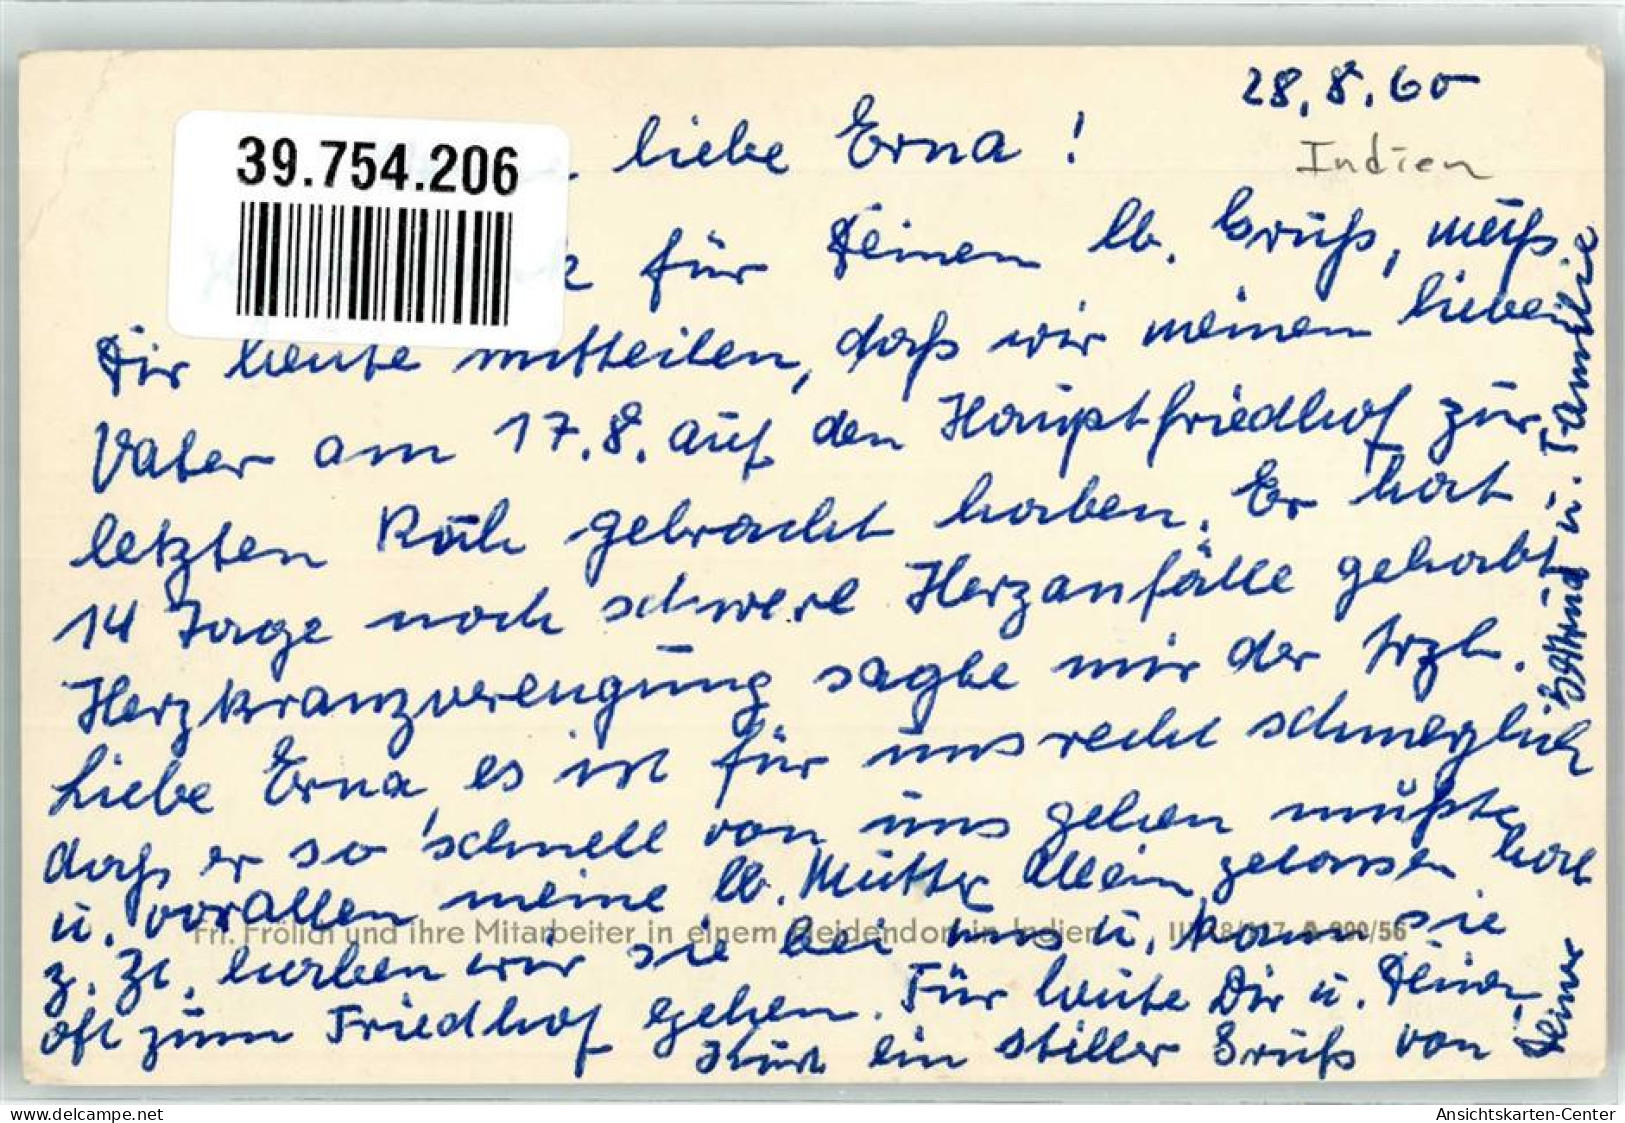 28.8.60
Indien
39.754.206
liebe Erna!
für Deinen lb. Gruß, muß
Dir heute mitteilen, daß wir meinen lieben
Vater am 17.8. auf den Hauptfriedhof zur
letzten Ruh gebracht haben. Er hat
14 Tage noch schwere Herzanfälle gehabt
Herzkranzverengung sagte mir der Arzt.
Liebe Erna, es ist für uns recht schmerzlich
daß er so schnell von uns gehen mußte
u. vor allen meine lb. Mutter allein gelassen hat
Frl. Frölich und ihre Mitarbeiter in einem Heidendorf in Indien
z. Zt. haben wir sie bei uns u. kann sie
oft zum Friedhof gehen. Für heute Dir u. Deinen
ein stiller Gruß von
Deiner
u. Familie
delcampe.net
Ansichtskarten-Center